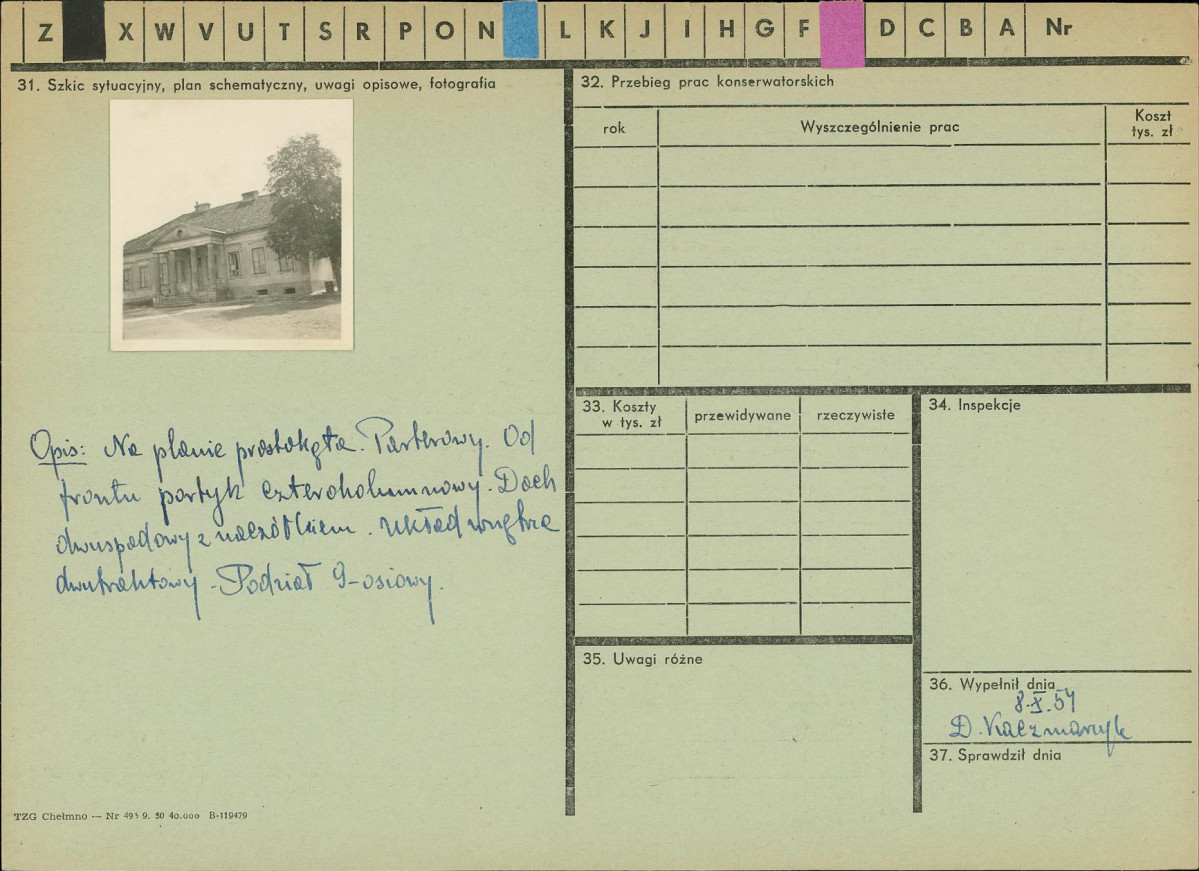 Z X W V U T S R P O N L K J I H G F D C B A Nr
31. Szkic sytuacyjny, plan schematyczny, uwagi opisowe, fotografia
Opis: Na planie prostokąta. Parterowy. Od
frontu portyk czterokolumnowy. Dach
dwuspadowy z naczółkiem. Układ wnętrza
dwutraktowy - Podział 9-osiowy.
TZG Chełmno — Nr 495 9. 50 40.000 B-119479
32. Przebieg prac konserwatorskich
rok
Wyszczególnienie prac
Koszt
tys. zł
33. Koszty
w tys. zł
przewidywane
rzeczywiste
34. Inspekcje
35. Uwagi różne
36. Wypełnił dnia
8.X.57
D. Kaczmarzyk
37. Sprawdził dnia